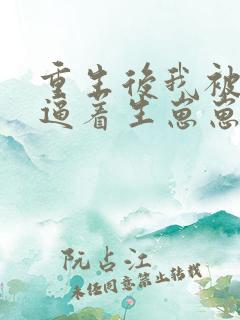 重生後我被
逼着生崽崽
阮占江
未经同意禁止转载